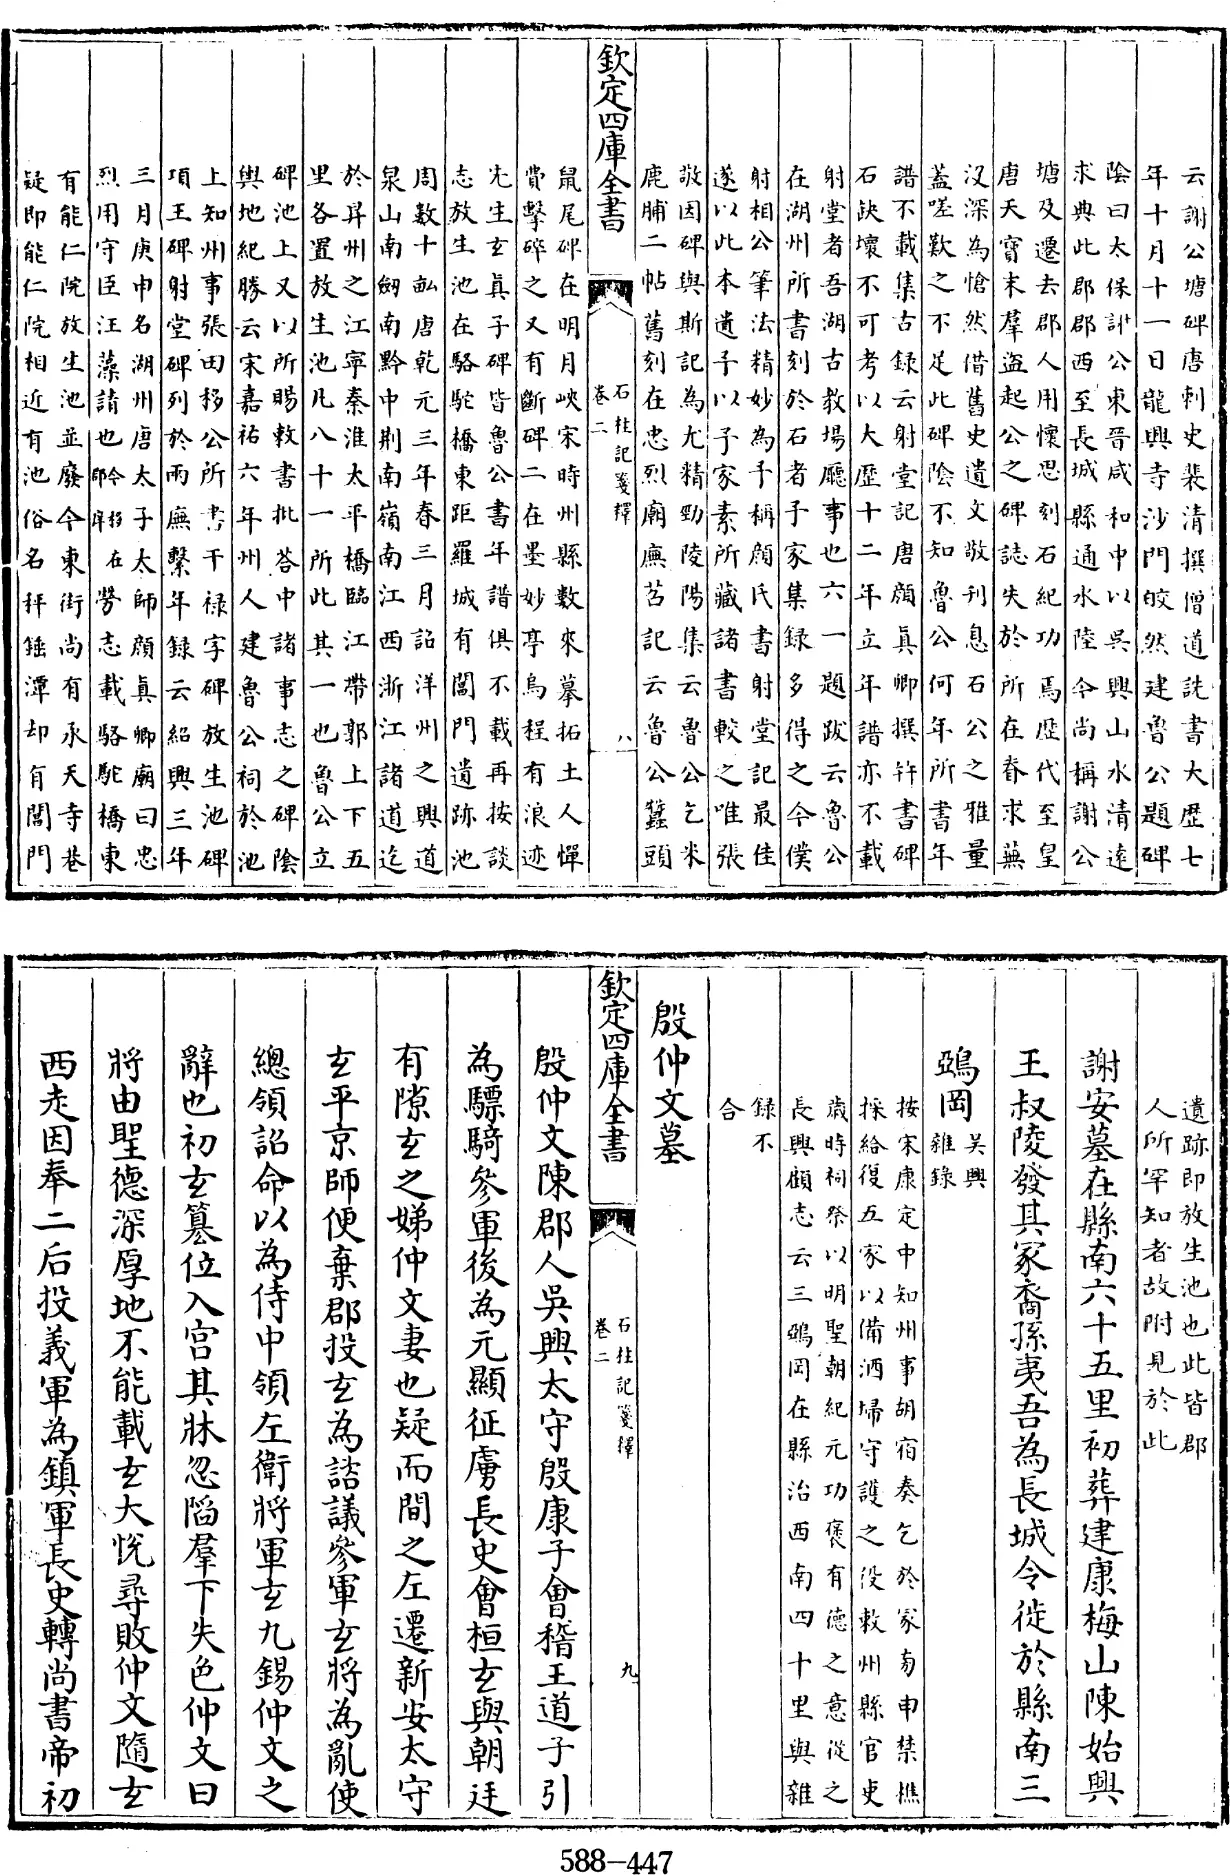 云謝公塘碑唐刺史裴清撰僧道詵書大歴七
年十月十一日龍興寺沙門皎然建魯公題碑
陰曰太保謝公東晉咸和中以吳興山水清遠
求典此郡郡西至長城縣通水陸今尚稱謝公
塘及遷去郡人用懷思刻石紀功焉歴代至皇
唐天寶末羣盜起公之碑誌失於所在春求蕪
沒深為愴然借舊史遺文敬刊息石公之雅量
蓋嗟歎之不足此碑陰不知魯公何年所書年
譜不載集古録云射堂記唐顔真卿撰并書碑
石缺壞不可考以大歴十二年立年譜亦不載
射堂者吾湖古教場廳事也六一題跋云魯公
在湖州所書刻於石者予家集録多得之今僕
射相公筆法精妙為予稱顔氏書射堂記最佳
遂以此本遺予以予家素所藏諸書較之唯張
敬因碑與斯記為尤精勁陵陽集云魯公乞米
鹿脯二帖舊刻在忠烈廟廡苕記云魯公蠶頭
欽定四庫全書
石柱記箋釋
卷二
八
鼠尾碑在明月峽宋時州縣數來摹拓土人憚
費擊碎之又有斷碑二在墨妙亭烏程有浪迹
先生玄真子碑皆魯公書年譜俱不載再按談
志放生池在駱駝橋東距羅城有閶門遺跡池
周數十畝唐乾元三年春三月詔洋州之興道
泉山南劒南黔中荆南嶺南江西浙江諸道迄
於昇州之江寧秦淮太平橋臨江帶郭上下五
里各置放生池凡八十一所此其一也魯公立
碑池上又以所賜敕書批荅中諸事志之碑陰
輿地紀勝云宋嘉祐六年州人建魯公祠於池
上知州事張田移公所書干禄字碑放生池碑
項王碑射堂碑列於兩廡繫年録云紹興三年
三月庚申名湖州唐太子太師顔真卿廟曰忠
烈用守臣汪藻請也今移在郡廨勞志載駱駝橋東
有能仁院放生池並廢今東街尚有永天寺巷
疑即能仁院相近有池俗名秤錘潭却有閶門
遺跡即放生池也此皆郡
人所罕知者故附見於此
謝安墓在縣南六十五里初葬建康梅山陳始興
王叔陵發其冢裔孫夷吾為長城令徙於縣南三
鵶岡吳興
雜錄
按宋康定中知州事胡宿奏乞於冢旁申禁樵
採給復五家以備洒埽守護之役敕州縣官吏
歲時祠祭以明聖朝紀元功褒有德之意從之
長興顧志云三鵶岡在縣治西南四十里與雜
録不
合
殷仲文墓
欽定四庫全書
石柱記箋釋
卷二
九
殷仲文陳郡人吳興太守殷康子會稽王道子引
為驃騎參軍後為元顯征虜長史會桓玄與朝廷
有隙玄之娣仲文妻也疑而間之左遷新安太守
玄平京師便棄郡投玄為諮議參軍玄將為亂使
總領詔命以為侍中領左衛將軍玄九錫仲文之
辭也初玄篡位入宫其牀忽陷羣下失色仲文曰
將由聖德深厚地不能載玄大悅尋敗仲文隨玄
西走因奉二后投義軍為鎮軍長史轉尚書帝初
588-447